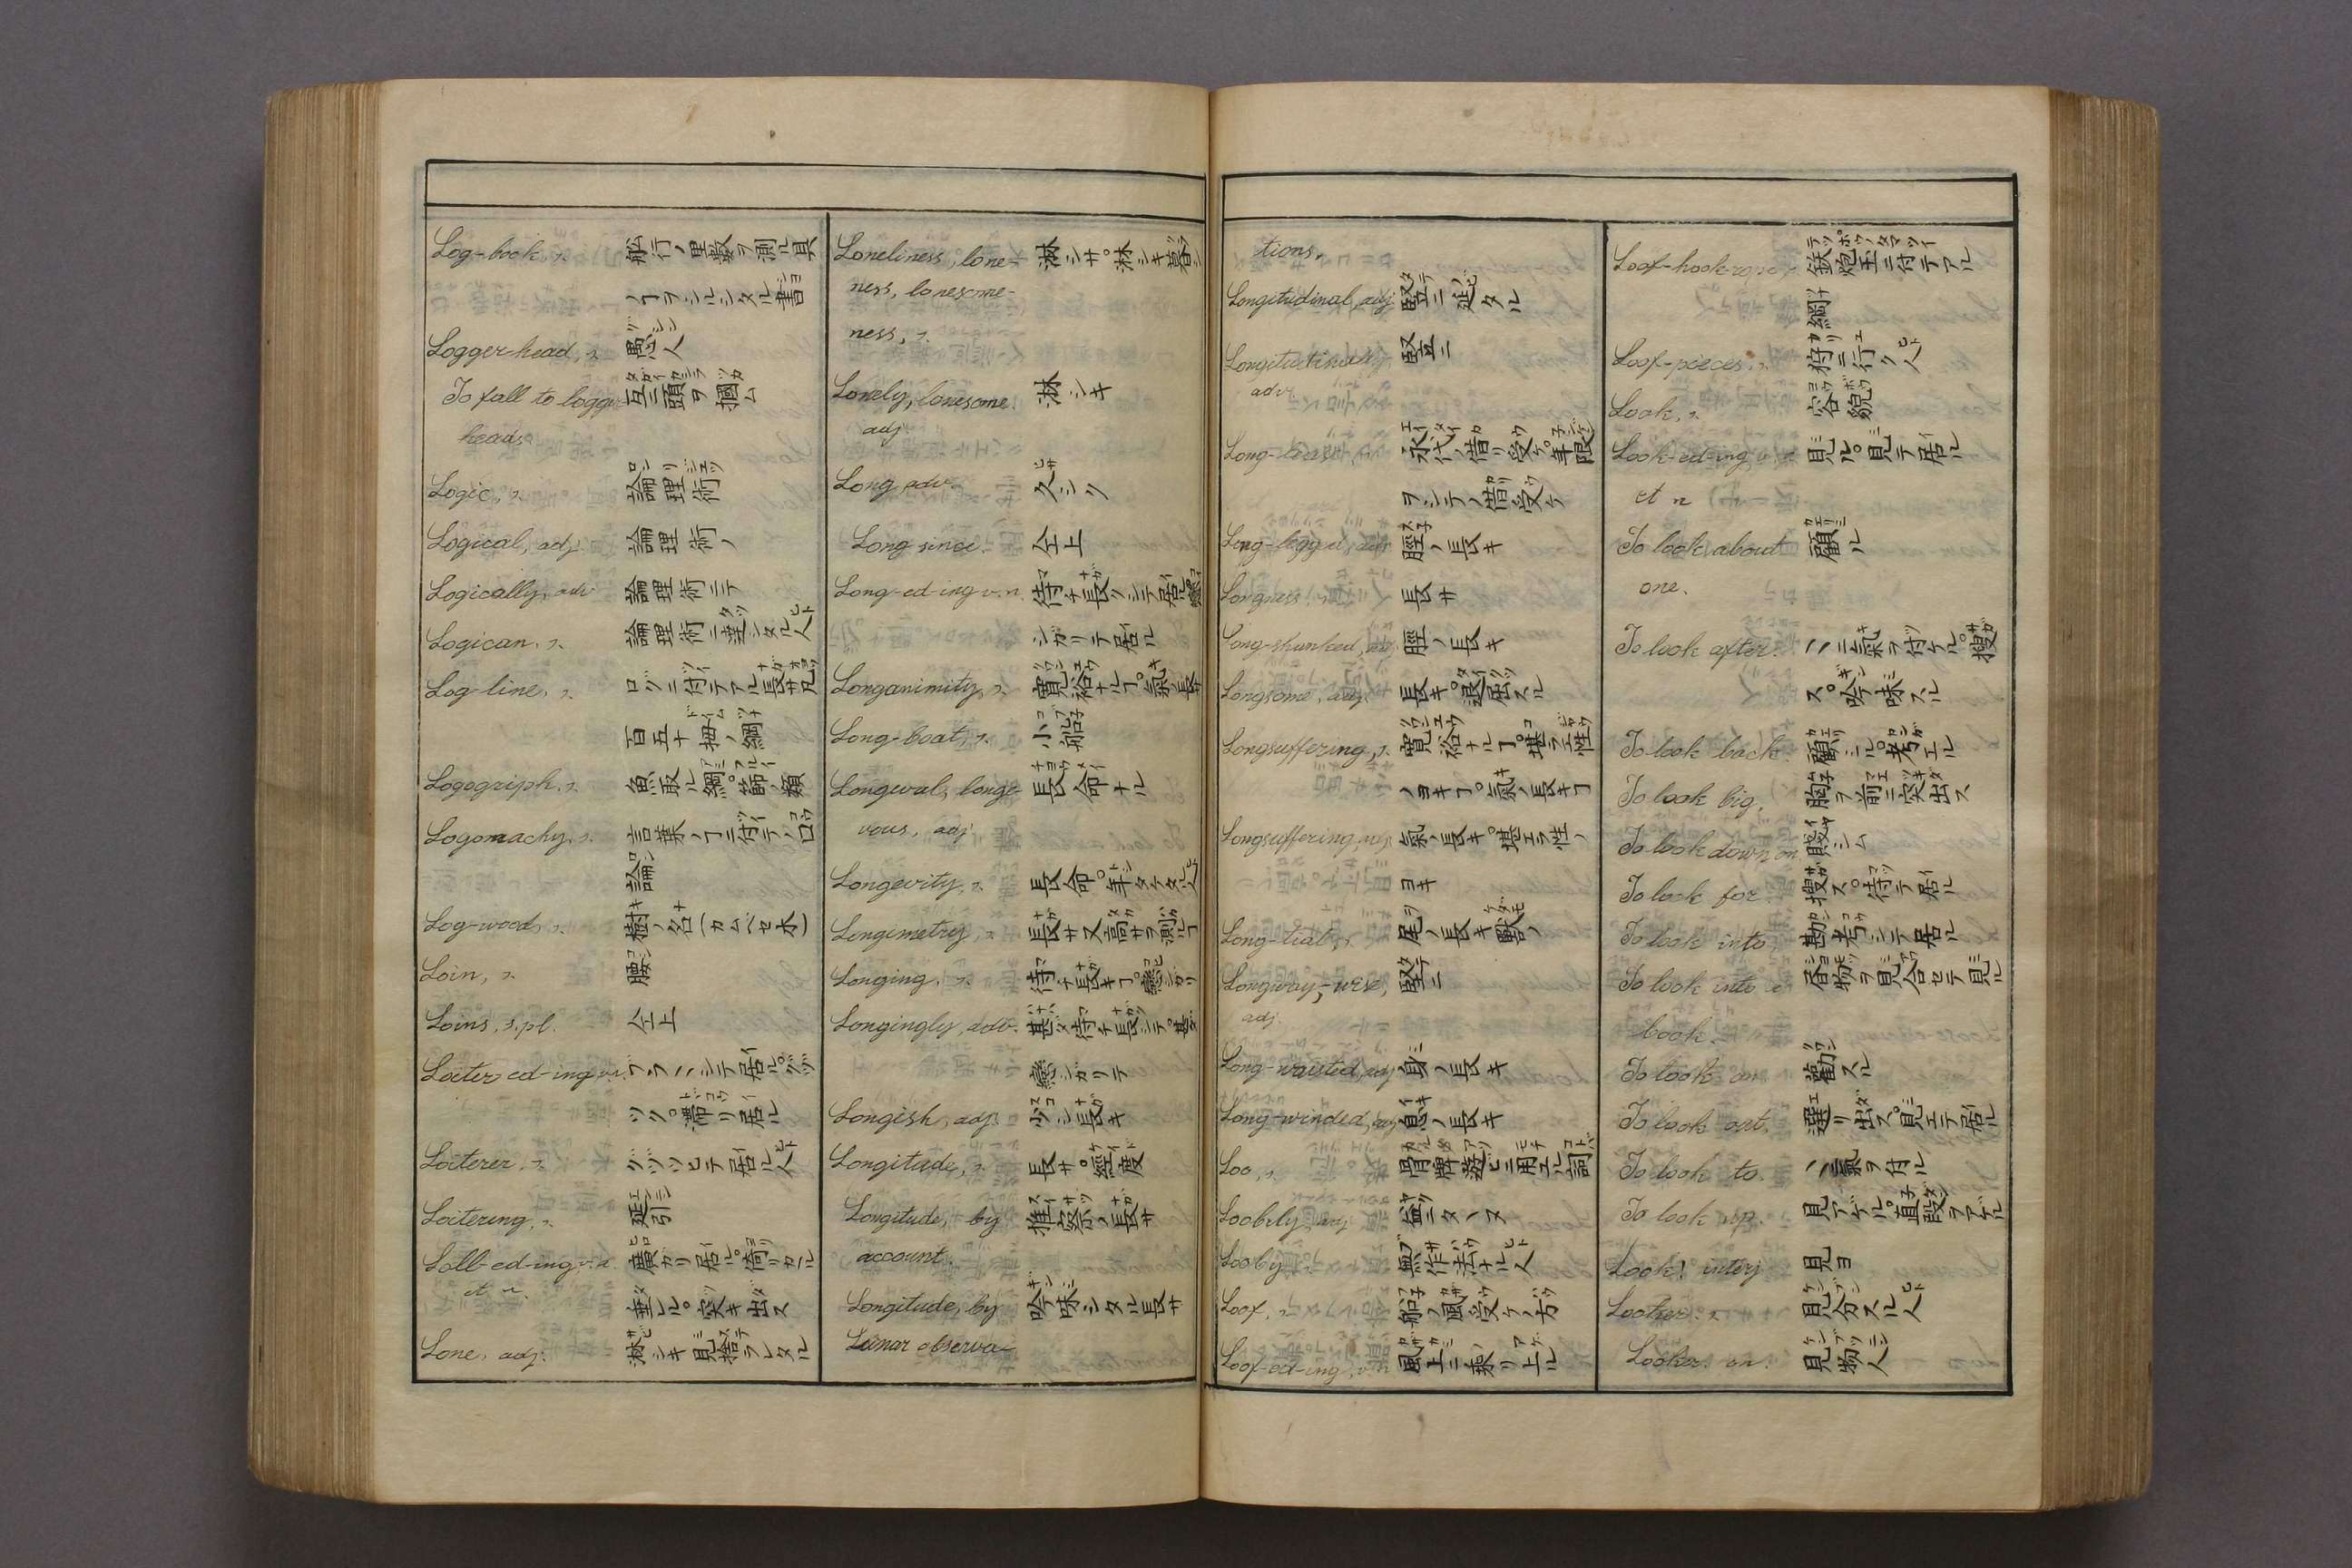 Log-book, s. 舩行ノ里数ヲ測ル具
ノヿヲシルシタル書
Logger-head, s. 愚人
To fall to logger 互ニ頭ヲ摑ム
heads
Logic, s. 論理術
Logical, adj. 論理術ノ
Logically, adv. 論理術ニテ
Logican, s. 論理術ニ達シタル人
Log-line, s. ログニ付テアル長サ凡
百五十拇ノ綱
Logogriph, s. 魚取ル網。篩ノ類
Logomachy, s. 言葉ノヿニ付テノ口
論
Log-wood, s. 樹ノ名
Loin, s. 腰
Loins, s. pl. 仝上
Loiter-ed-ing, v.n. ブラ〳〵シテ居ル。グヅ
ツク。滯リ居ル
Loiterer, s. グヅツヒテ居ル人
Loitering, s. 延引
Loll-ed-ing, v.a. 廣ガリ居ル。倚リカヽル
et n. 垂レル。突キ出ス
Lone, adj. 淋シキ見捨ラレタル
Loneliness, lone- 淋シサ。淋シキ暮シ
ness, lonesome-
ness, s.
Lonely, lonesome. 淋シキ
adj.
Long, adv. 久シク
Long since. 仝上
Long-ed-ing, v.n. 待チ長クシテ居ル。戀
シガリテ居ル
Longanimity, s. 寛裕ナルヿ。氣ノ長サ
Long-boat, s. 小船
Longeval, longe- 長命ナル
vous, adj.
Longevity, s. 長命。年タケタル人
Longimetry, s. 長サ又高サヲ測ルヿ
Longing, s. 待チ長キヿ。戀シガリ
Longingly, adv. 甚タ待チ長クシテ。甚
戀シガリテ
Longish, adj. 少シ長キ
Longitude, s. 長サ。經度
Longitude, by 推察ノ長サ
account.
Longitude, by 吟味シタル長サ
Lunar observa-
tions.
Longitudinal, adj. 竪ニ延タル
Longitudinally, 竪ニ
adv.
Long-lease, s. 永代ノ借リ受ケ。年限
ヲシテノ借受ケ
Long-legged, adj. 脛ノ長キ
Longness, s. 長サ
Long-shanked, adj. 脛ノ長キ
Longsome, adj. 長キ。退屈スル
Longsuffering, s. 寛裕ナルヿ。堪ラエ性
ノヨキヿ。氣ノ長キヿ
Longsuffering, adj. 氣ノ長キ。堪エラ性ノ
ヨキ
Long-tial, s. 尾ノ長キ獸ノ
Longway,-wise, 竪ニ
adj.
Long-waisted, adj. 身ノ長キ
Long-winded, adj. 息ノ長キ
Loo, s. 骨牌遊ビニ用エル詞
Loobily, adj. 益ニタヽヌ
Looby, s. 無作法ナル人
Loof, s. 船ノ風受ケノ方
Loof-ed-ing, v.n. 風上ニ乘リ上ル
Loof-hook-rope, 鉄炮玉ニ付テアル
綱
Loof-pieces, s. 狩ニ行ク人
Look, s. 容貌
Look-ed-ing, v.a. 見ル。見テ居ル
et n
To look about 顧ル
one.
To look after. 〳〵ニ氣ヲ付ケル。搜
ス。吟味スル
To look back. 顧シル。考エル
To look big. 胸ヲ前ニ突出ス
To look down on 賤シム
To look for. 搜ス。待テ居ル
To look into. 勘考シテ居ル
To look into a 書物ヲ見合セテ見ル
book.
To look on 勸スル
To look out. 選リ出ス。見エテ居ル
To look to. 〳〵ニ氣ヲ付ル
To look up. 見アゲル。直段ヲアゲル
Look! interj 見ヨ
Looker. s. 見分スル人
Looker. on. 見物人